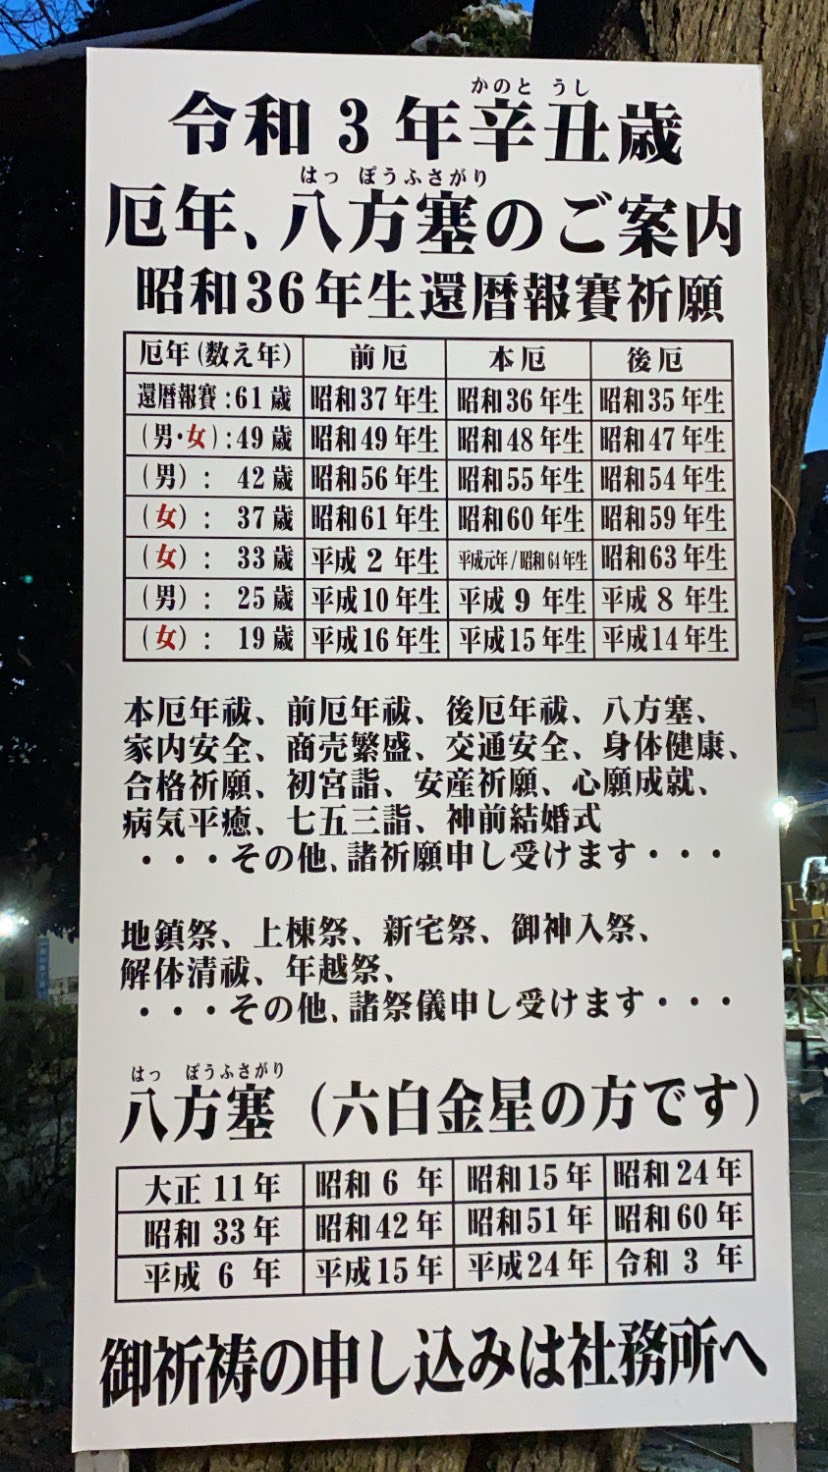 かのと うし
令和3年辛丑歳
はっ ぽうふさがり
厄年、八方塞のご案内
昭和36年生還暦報賽祈願
厄年(数え年) 前厄 本厄 後厄
還暦報賽:61歳 昭和37年生 昭和36年生 昭和35年生
(男・女):49歳 昭和49年生 昭和48年生 昭和47年生
(男): 42歳 昭和56年生 昭和55年生 昭和54年生
(女): 37歳 昭和61年生 昭和60年生 昭和59年生
(女): 33歳 平成2年生 平成元年/昭和64年生 昭和63年生
(男): 25歳 平成10年生 平成9年生 平成8年生
(女): 19歳 平成16年生 平成15年生 平成14年生
本厄年祓、前厄年祓、後厄年祓、八方塞、
家内安全、商売繁盛、交通安全、身体健康、
合格祈願、初宮詣、安産祈願、心願成就、
病気平癒、七五三詣、神前結婚式
・・・その他、諸祈願申し受けます・・・
地鎮祭、上棟祭、新宅祭、御神入祭、
解体清祓、年越祭、
・・・その他、諸祭儀申し受けます・・・
はっ ぽうふさがり
八方塞(六白金星の方です)
大正11年 昭和6年 昭和15年 昭和24年
昭和33年 昭和42年 昭和51年 昭和60年
平成6年 平成15年 平成24年 令和3年
御祈祷の申し込みは社務所へ